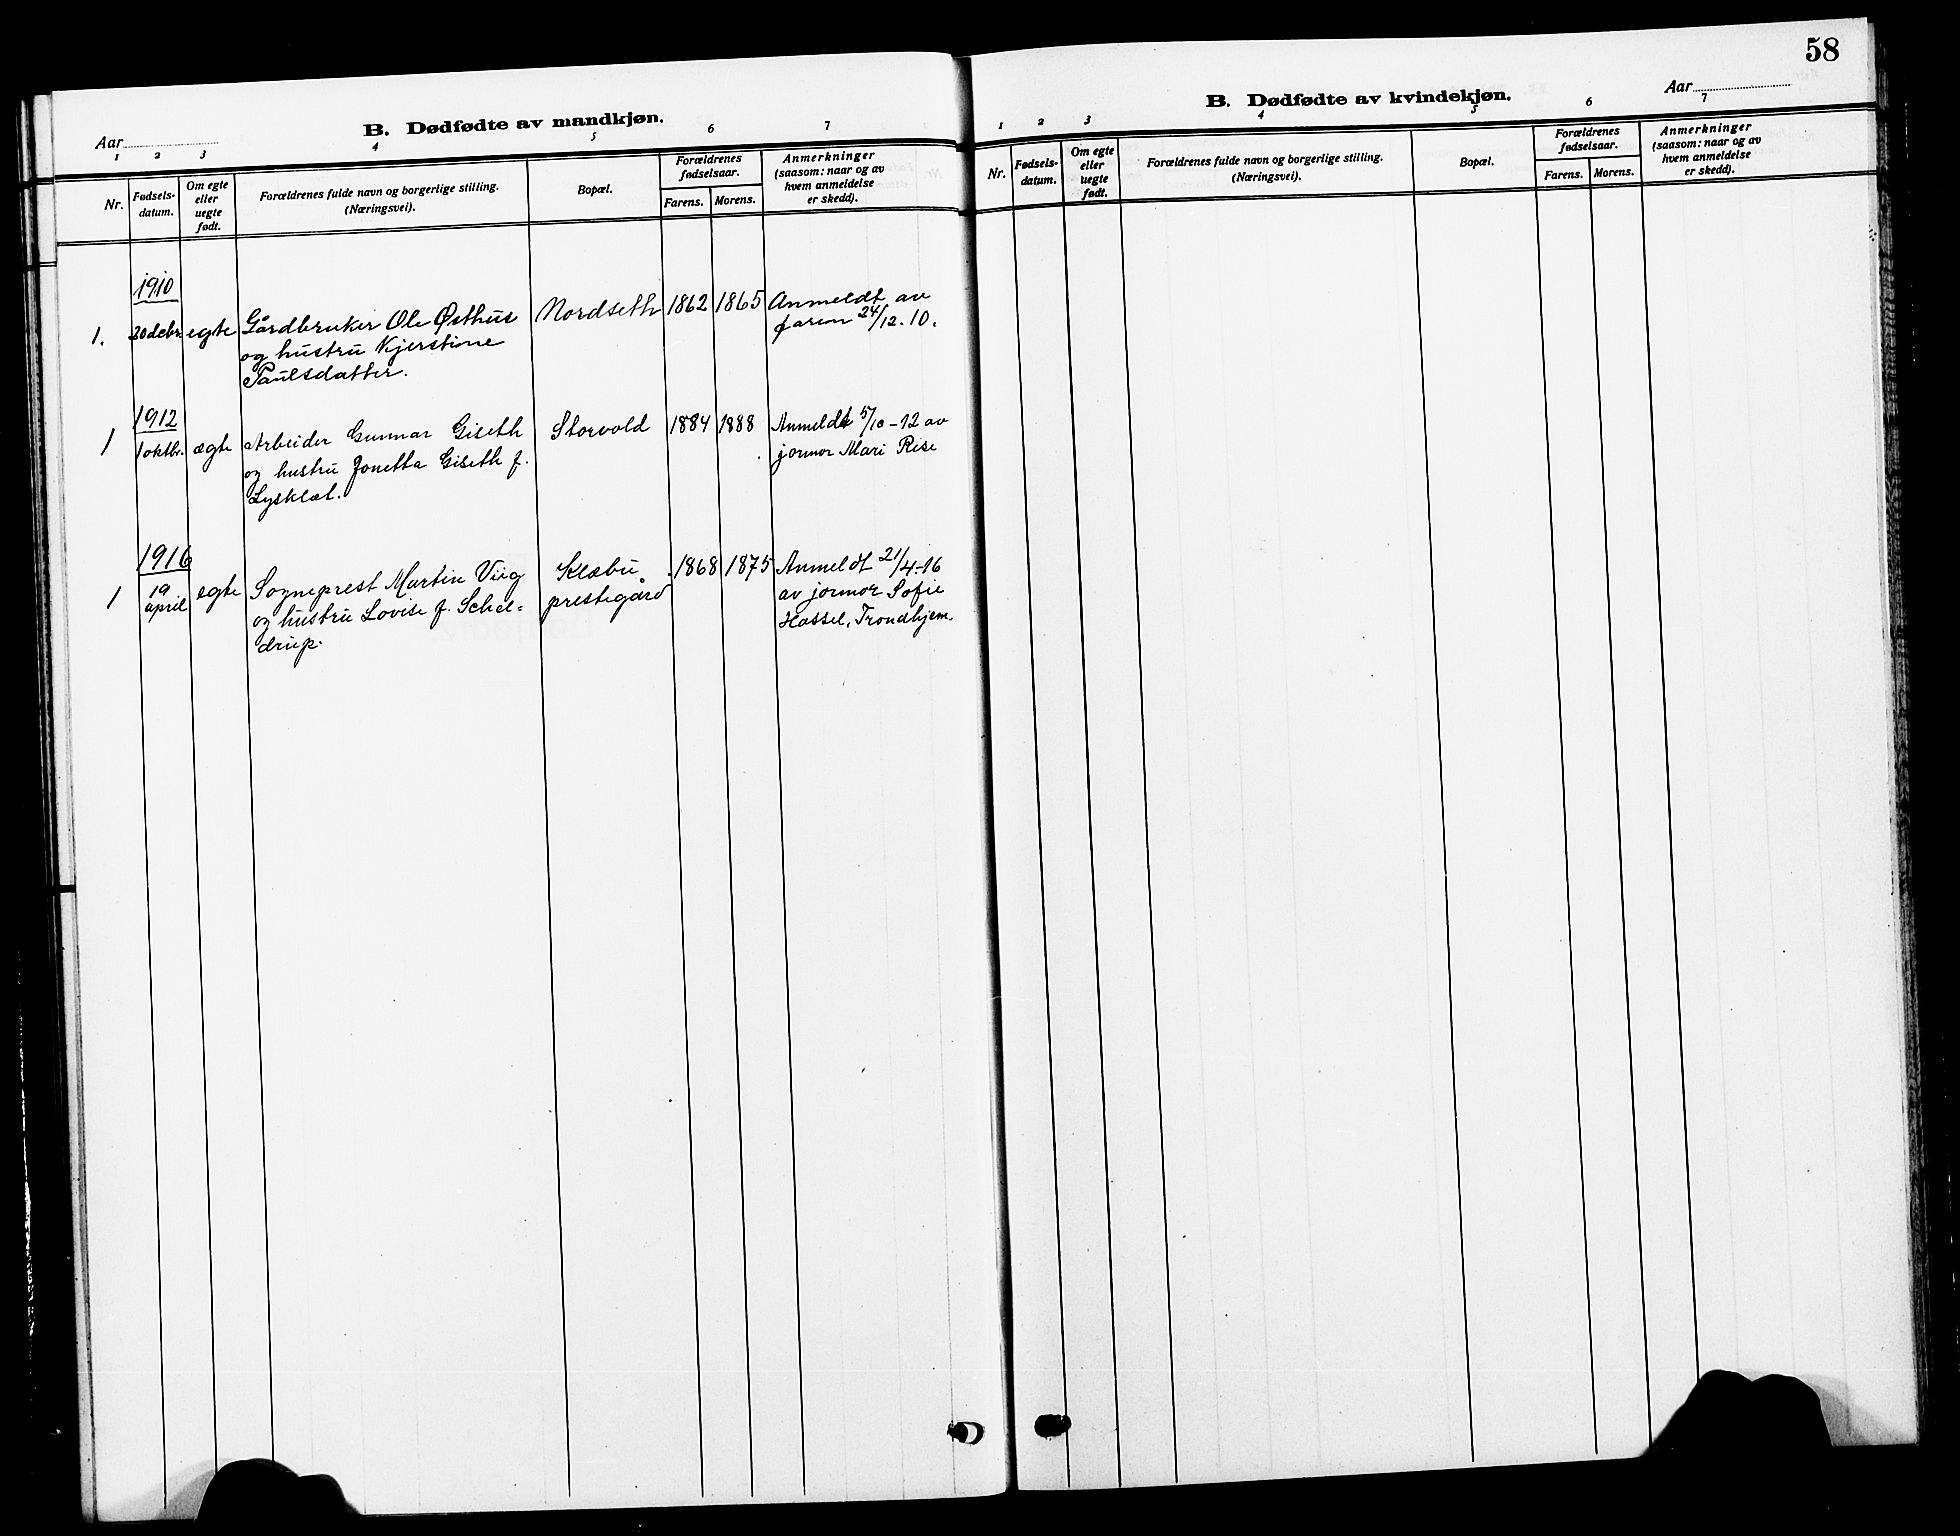 B. Dødfødte av mandkjøn.
Aar
1 2 3 4 5 6 7
Nr.
Fødsels-
datum.
Om egte
eller
uegte
født.
Forældrenes fulde navn og borgerlige stilling.
(Næringsvei).
Bopæl.
Forældrenes
fødselsaar.
Farens. Morens.
Anmerkninger
(saasom: naar og av
hvem anmeldelse
er skedd).
1910
1. 20 debr. egte Gårdbruker Ole Østhus Nordseth 1862 1865 Anmeldt av
og hustru Kjerstine faren 24/12.10.
Paulsdatter.
1912
1 1 oktbr. ægte Arbeider Gunnar Giseth Storvold 1884 1888 Anmeldt 5/10-12 av
og hustru Jonetta Giseth f. jormor Mari Rise
Lysklæt.
1916
1 19 april ægte Sogneprest Martin Viig Klæbu 1868 1875 Anmeldt 21/4-16
og hustru Lovise f. Schel= prestegård av jormor Sofie
drup. Hassel, Trondhjem.
58
B. Dødfødte av kvindekjøn.
Aar
1 2 3 4 5 6 7
Nr.
Fødsels-
datum.
Om egte
eller
uegte
født.
Forældrenes fulde navn og borgerlige stilling.
(Næringsvei).
Bopæl.
Forældrenes
fødselsaar.
Farens. Morens.
Anmerkninger
(saasom: naar og av
hvem anmeldelse
er skedd).